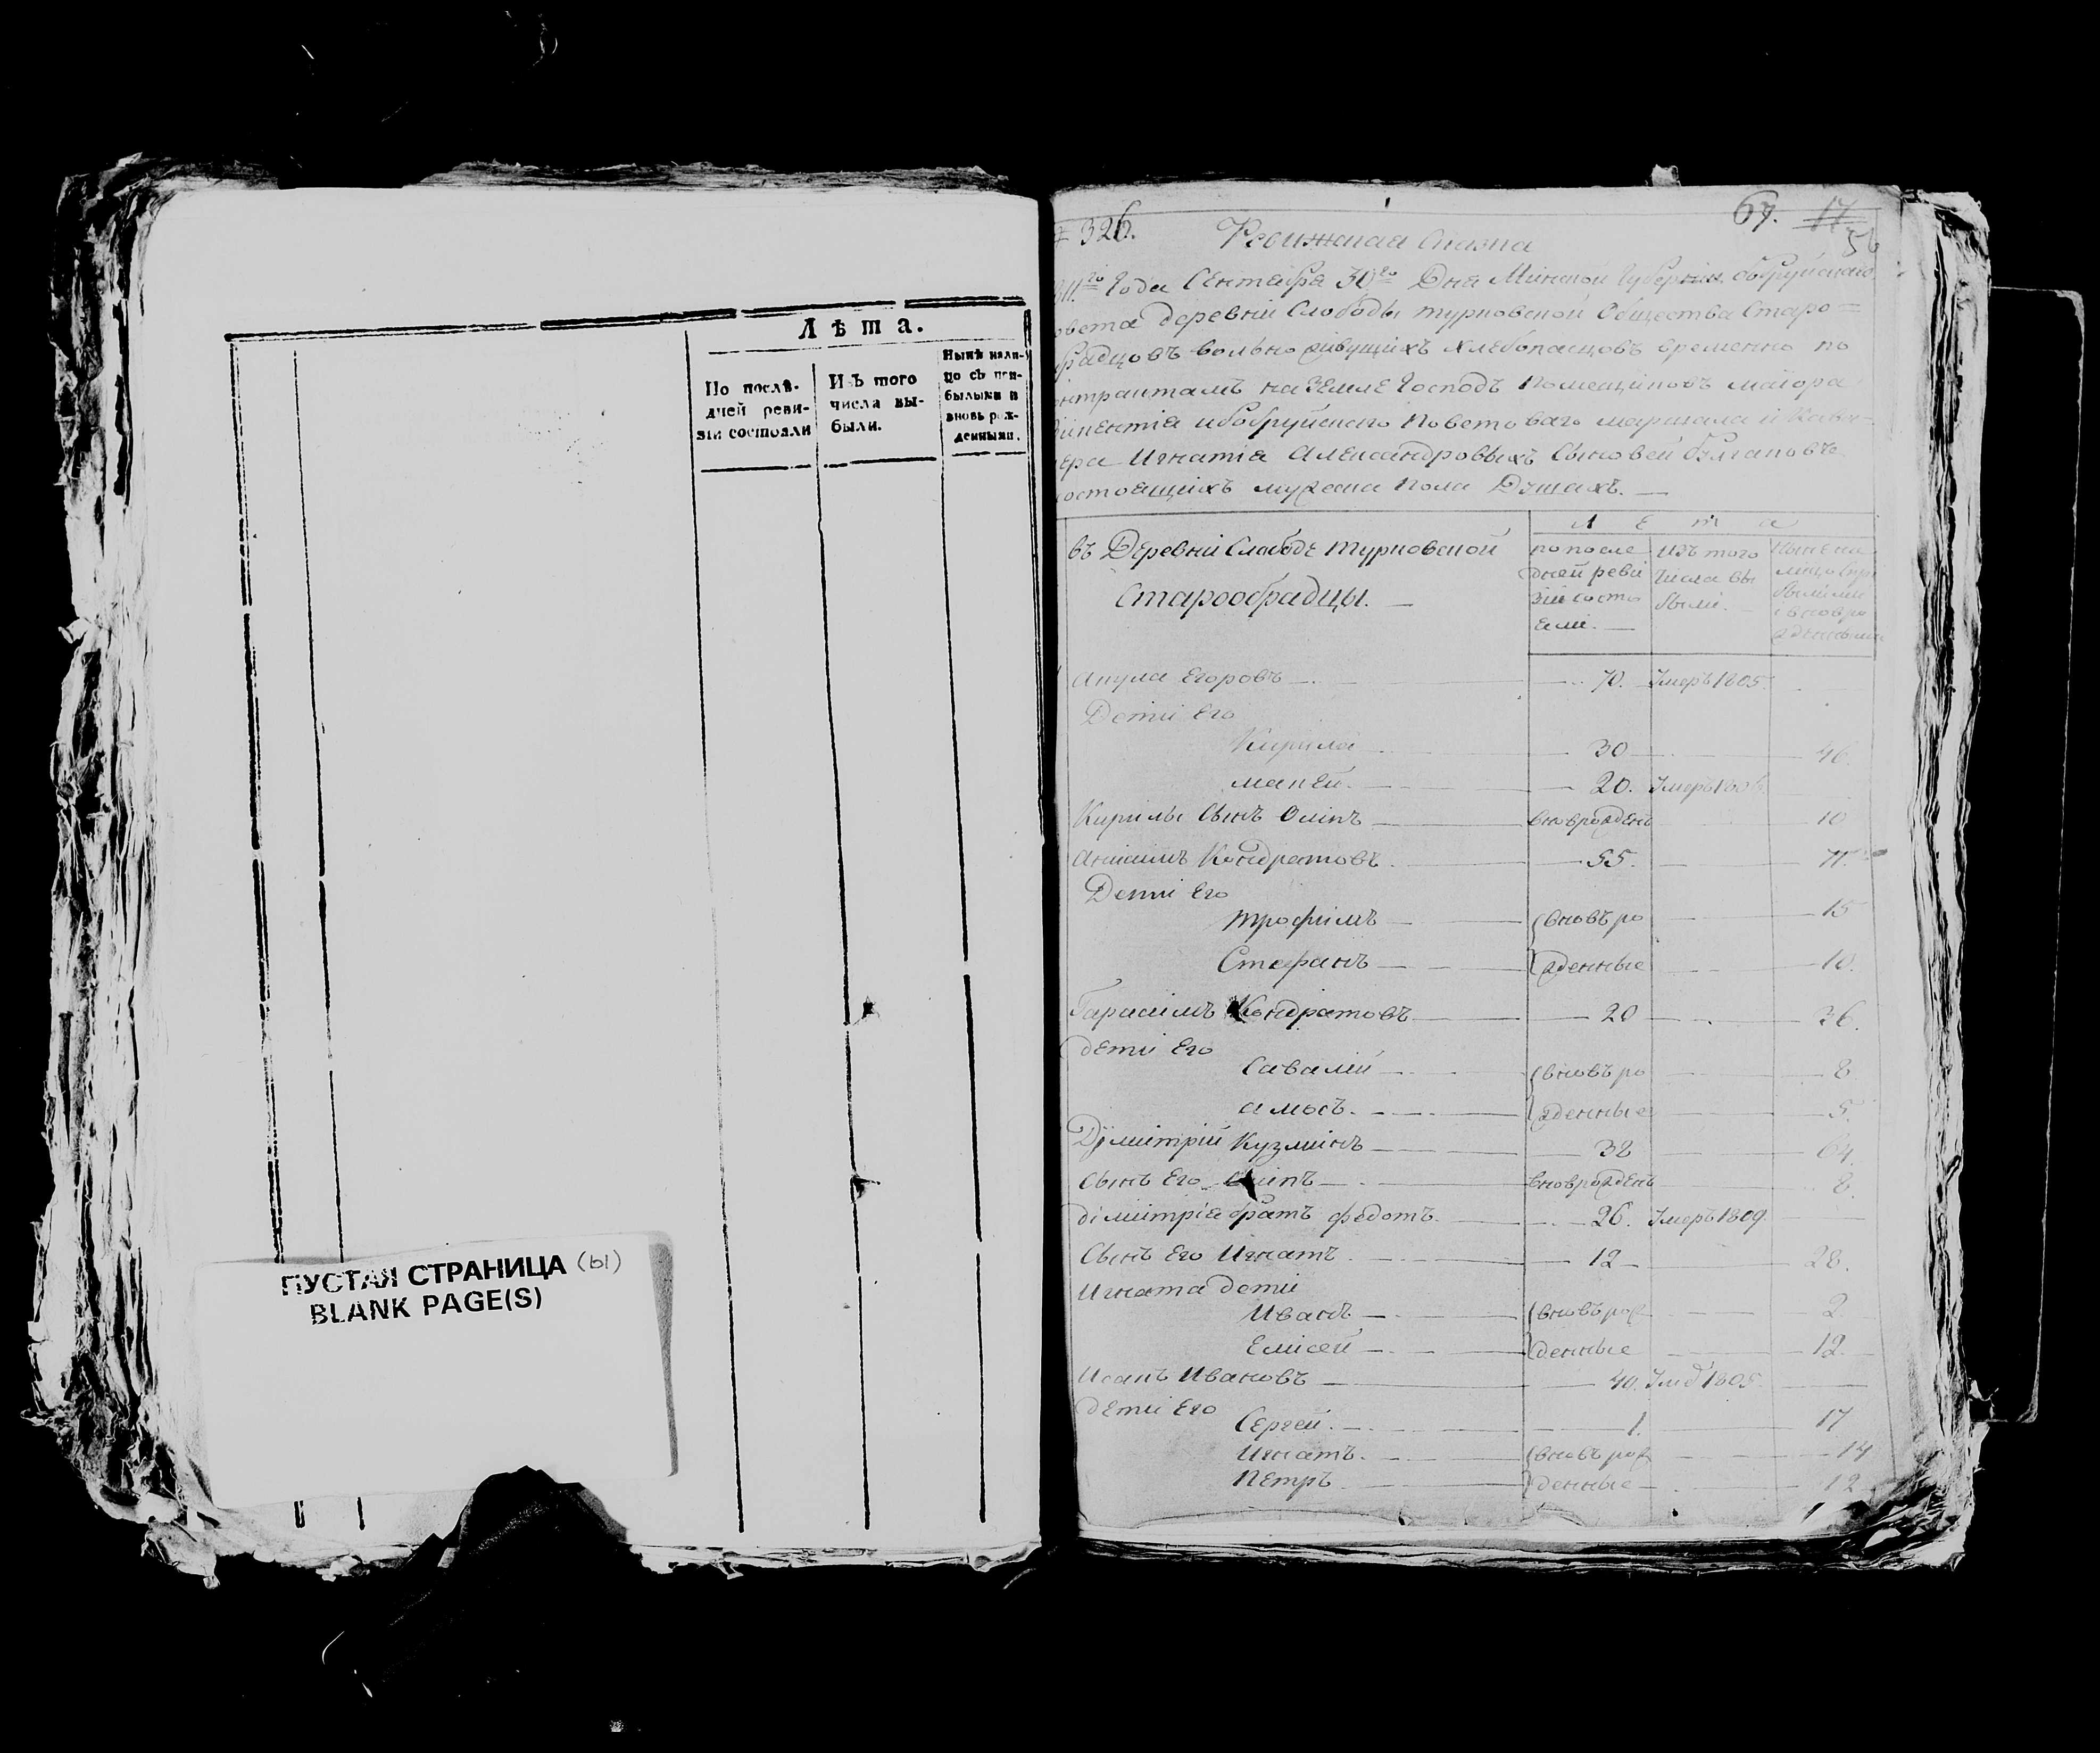 Лѣта.
По послѣ-
дней реви-
зіи состояли
Изъ того
числа вы-
были.
Нынѣ нали-
цо съ при-
былыми и
вновь рож-
денными.
ПУСТАЯ СТРАНИЦА (ы)
BLANK PAGE(S)
326.
67. 17
56
Ревижская Сказка
Года Сентабра 30го Дня Минской Губернии бобруйскаго
деревни Слободы турковской Общества Старо=
вольно живущихъ хлебопасцовъ временно по
на Земле Господъ Помещиковъ маиора
ибобруйскаго Поветоваго маршала и Кава-
Игнатіа Александровыхъ Сыновей булгаковъ
состоящихъ мужеска Пола Душахъ.
въ Деревни Слабоде турковской
Старообрадцы.
Лета
по после
дней реви
зіи состо
ели.
изъ того
числа вы
были.
Акула Егоровъ 70. Умеръ 1805.
Дети Его
Кирила 30 46.
макей. 20. Умеръ
Кирилы Сынъ Осипъ вноврожденъ 10
Анисимъ Кондратовъ. 55. 71.
Дети Его
трофимъ вновъ ро 15
Стефанъ жденные 10.
Гарасимъ Кондратовъ 20 36.
дети Его
Савалій вновъ ро 8
амосъ. жденные 5.
Дімитрій Кузминъ 38 64
Сынъ Его Осипъ вноврожденъ 8.
дімитріа братъ федотъ. 26. Умеръ 1809.
Сынъ Его Игнатъ 12 28.
Игната дети
Иванъ вновъ рож 2
Елисей денные 12.
Исапъ Ивановъ 40. 1805.
дети Его
Сергей. 1. 17
Игнатъ. вновъ рож 14
Петръ денные 12